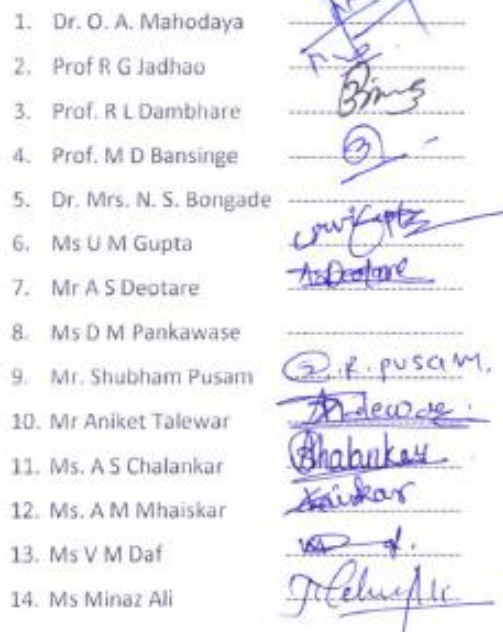 1. Dr. O. A. Mahodaya
2. Prof R G Jadhao
3. Prof. R L Dambhare
4. Prof. M D Bansinge
5. Dr. Mrs. N. S. Bongade
6. Ms U M Gupta
7. Mr A S Deotare AsDeotare
8. Ms D M Pankawase
9. Mr. Shubham Pusam S.R. PUSAM.
10. Mr Aniket Talewar
11. Ms. A S Chalankar
12. Ms. A M Mhaiskar
13. Ms V M Daf
14. Ms Minaz Ali